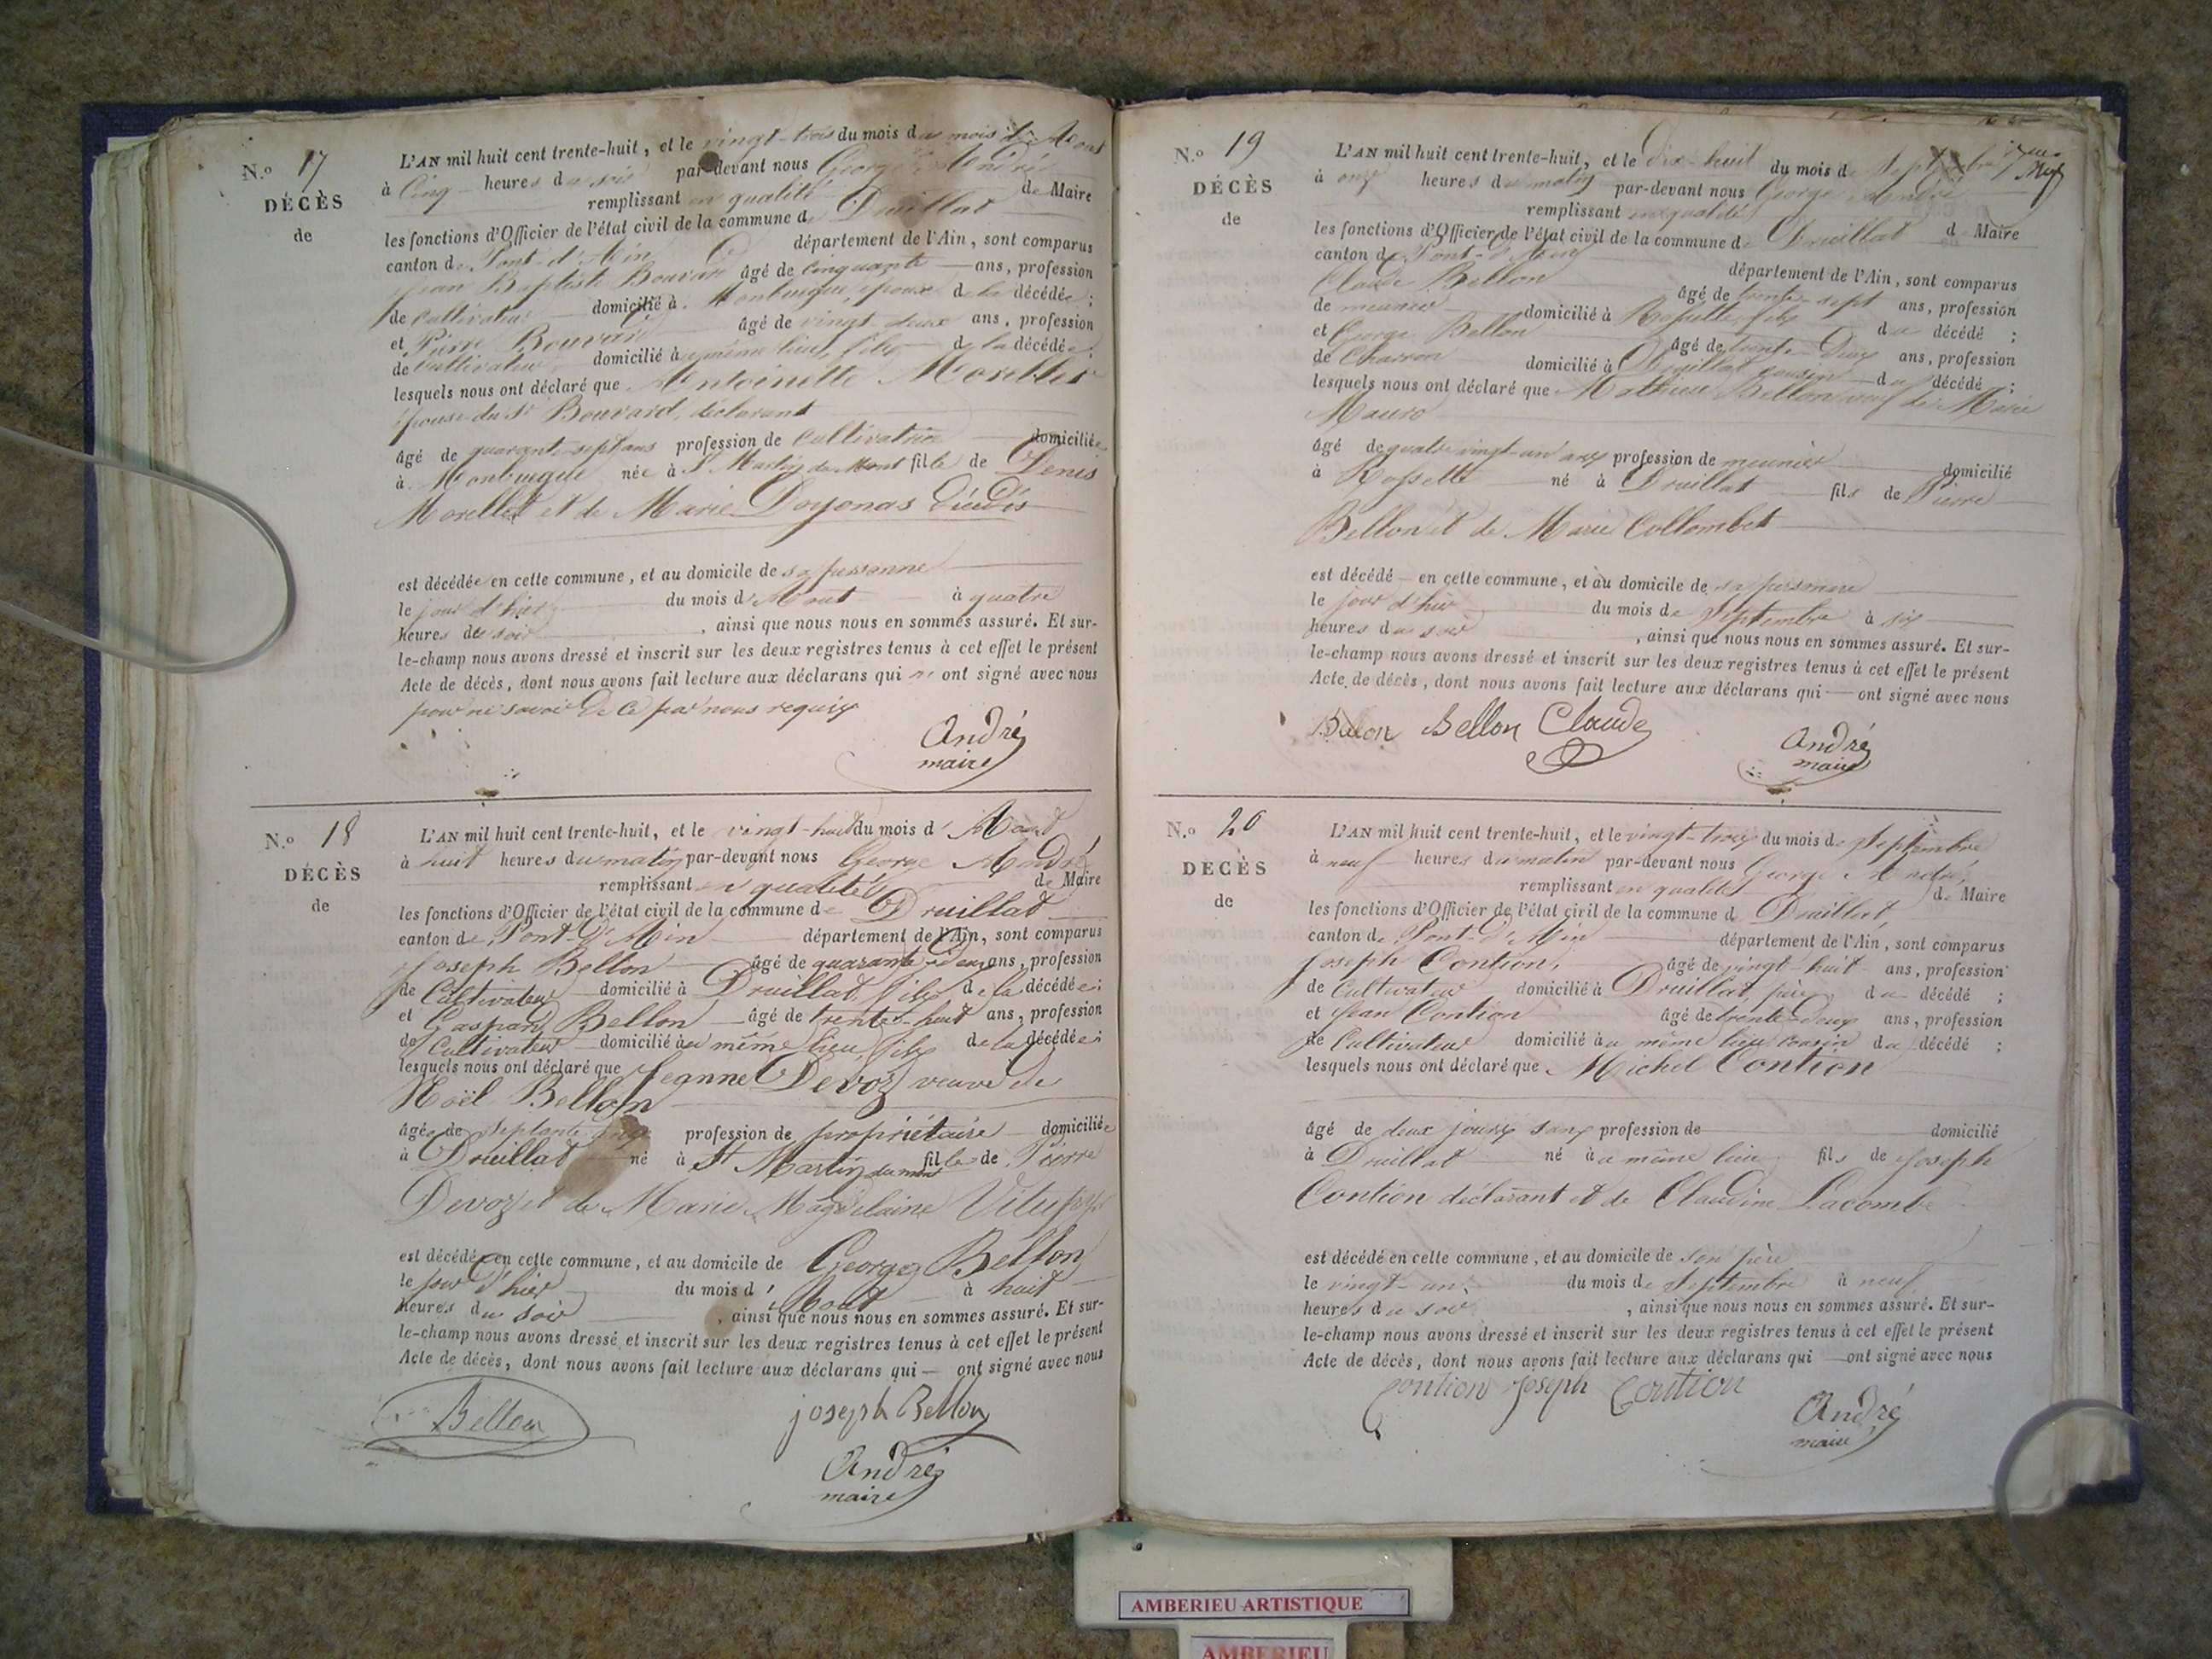 N.o 17
DÉCÈS
de
L'AN mil huit cent trente-huit, et le vingt-trois du mois du mois d'Aout
à Cinq heures du soir par-devant nous George André
remplissant en qualité de Maire
les fonctions d'Officier de l'état civil de la commune de Druillat
canton de Pont-d'Ain département de l'Ain, sont comparus
Jean Baptiste Bouvard âgé de Cinquante ans, profession
de Cultivateur domicilié à époux de la décédée;
et Pierre Bouvard âgé de vingt-deux ans, profession
de Cultivateur domicilié au même lieu, fils de la décédée;
lesquels nous ont déclaré que Antoinette Morellet
épouse du Sr Bouvard, déclarant
âgé de quarante-sept ans profession de Cultivatrice domiciliée
à née à St Martin du Mont fille de Denis
Morellet et de Marie Doyonas
est décédée en cette commune, et au domicile de sa personne
le jour d'hier du mois d'Aout à quatre
heures du soir, ainsi que nous nous en sommes assuré. Et sur-
le-champ nous avons dressé et inscrit sur les deux registres tenus à cet effet le présent
Acte de décès, dont nous avons fait lecture aux déclarans qui n' ont signé avec nous
pour ne savoir De Ce par nous requis
André
maire
N.o 18
DÉCÈS
de
L'AN mil huit cent trente-huit, et le vingt-huit du mois d'Aout
à huit heures du matin par-devant nous George André
remplissant en qualité de Maire
les fonctions d'Officier de l'état civil de la commune de Druillat
canton de Pont-D'Ain département de l'Ain, sont comparus
Joseph Bellon âgé de quarante-deux ans, profession
de Cultivateur domicilié à Druillat, fils de la décédée;
et Gaspard Bellon âgé de trente-huit ans, profession
de Cultivateur domicilié au même lieu, fils de la décédée;
lesquels nous ont déclaré que Jeanne Devoz veuve de
Noël Bellon
âgée de septante profession de propriétaire domiciliée
à Druillat né à St Martin du mont fille de Pierre
Devoz et de Marie Magdelaine
est décédée en cette commune, et au domicile de George Bellon
le jour d'hier du mois d'Aout à huit
heures du soir, ainsi que nous nous en sommes assuré. Et sur-
le-champ nous avons dressé et inscrit sur les deux registres tenus à cet effet le présent
Acte de décès, dont nous avons fait lecture aux déclarans qui — ont signé avec nous
Bellon joseph Bellon
André
maire
N.o 19
DÉCÈS
de
L'AN mil huit cent trente-huit, et le dix-huit du mois de Septembre
à onze heures du matin par-devant nous George André
remplissant en qualité de Maire
les fonctions d'Officier de l'état civil de la commune de Druillat
canton de Pont-d'Ain département de l'Ain, sont comparus
Claude Bellon âgé de trente-sept ans, profession
de meunier domicilié à Rossette fils du décédé;
et George Bellon âgé de trente-deux ans, profession
de Charron domicilié à Druillat cousin du décédé;
lesquels nous ont déclaré que Mathieu Bellon veuf de Marie
Mauro
âgé de quatre vingt-un ans profession de meunier domicilié
à Rossette né à Druillat fils de Pierre
Bellon et de Marie Collombet
est décédé en cette commune, et au domicile de sa personne
le jour d'hier du mois de Septembre à six
heures du soir, ainsi que nous nous en sommes assuré. Et sur-
le-champ nous avons dressé et inscrit sur les deux registres tenus à cet effet le présent
Acte de décès, dont nous avons fait lecture aux déclarans qui — ont signé avec nous
Bellon Claude
André
maire
N.o 20
DECÈS
de
L'AN mil huit cent trente-huit, et le vingt-trois du mois de Septembre
à neuf heures du matin par-devant nous George André
remplissant en qualité de Maire
les fonctions d'Officier de l'état civil de la commune d Druillat
canton de Pont-d'Ain département de l'Ain, sont comparus
Joseph Contion, âgé de vingt-huit ans, profession
de Cultivateur domicilié à Druillat, père du décédé;
et Jean Contion âgé de trente-deux ans, profession
de Cultivateur domicilié au même lieu cousin du décédé;
lesquels nous ont déclaré que Michel Contion
âgé de deux jours sans profession de domicilié
à Druillat né au même lieu fils de Joseph
Contion déclarant et de Claudine Lacombe
est décédé en cette commune, et au domicile de son père
le vingt-un du mois de Septembre à neuf
heures du soir, ainsi que nous nous en sommes assuré. Et sur-
le-champ nous avons dressé et inscrit sur les deux registres tenus à cet effet le présent
Acte de décès, dont nous avons fait lecture aux déclarans qui — ont signé avec nous
Contion Joseph Contion
André
maire
AMBERIEU ARTISTIQUE
AMBERIEU